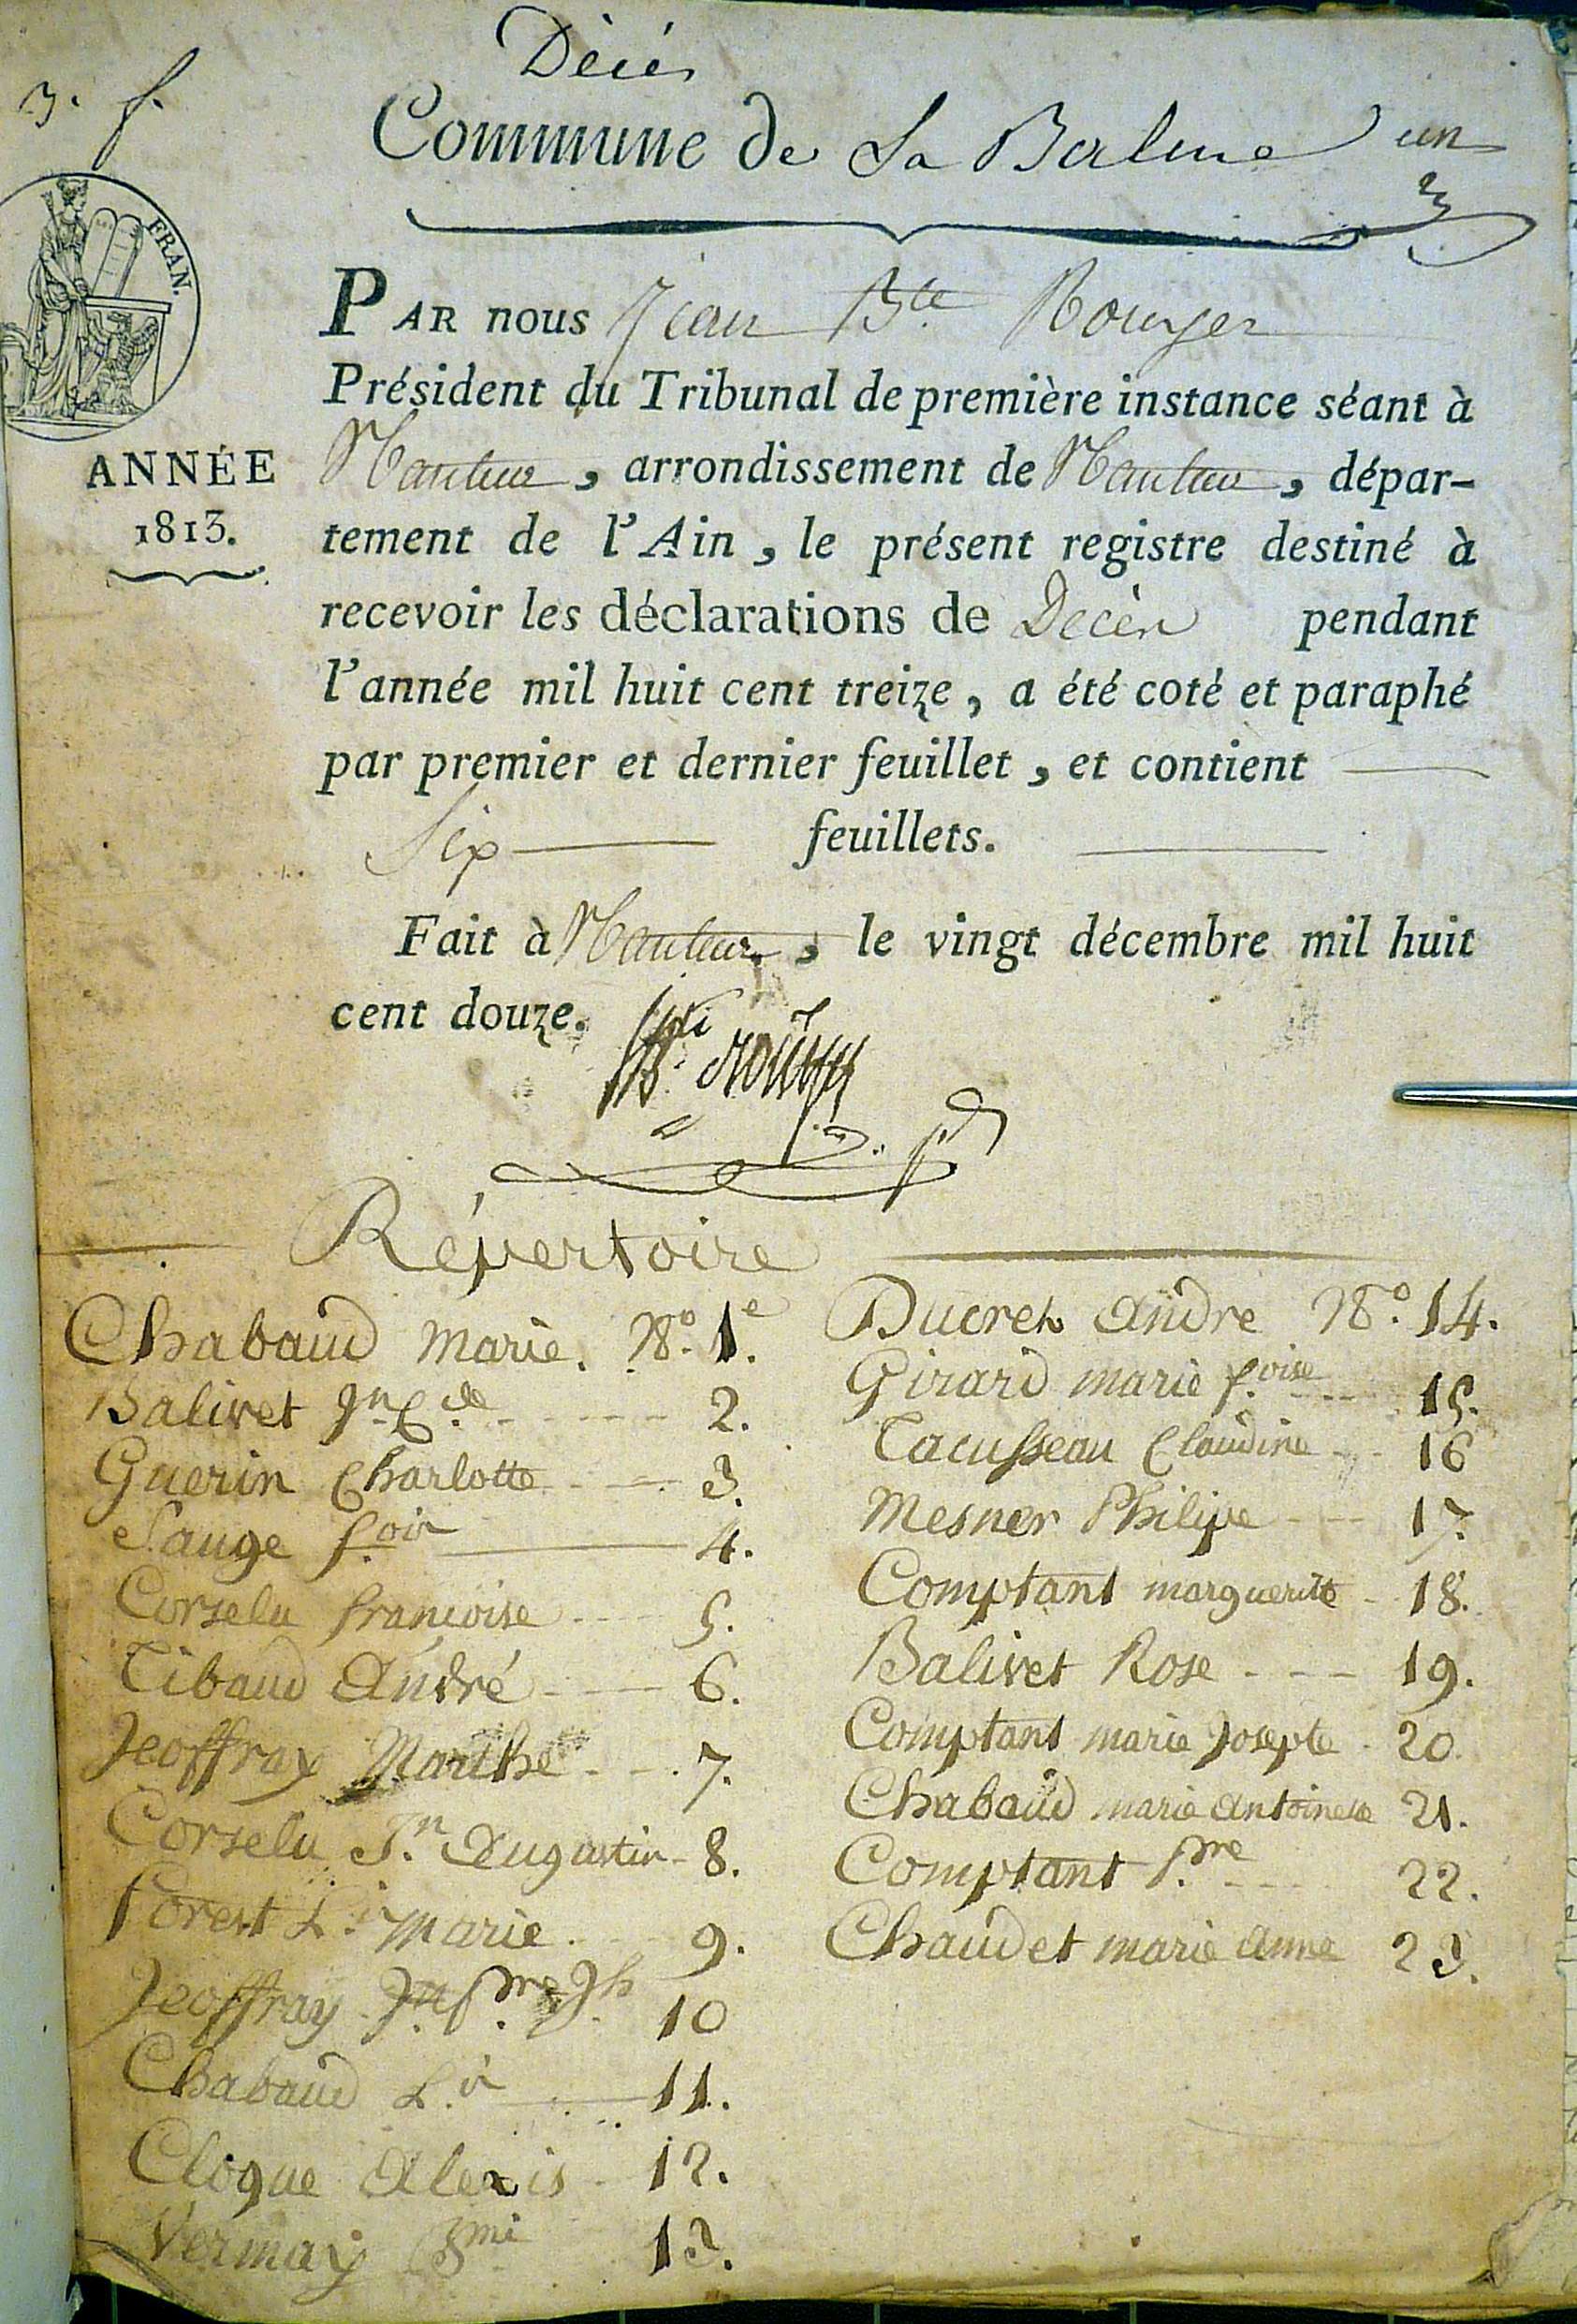 Décès
3. f.
Commune de La Balme un
FRAN.
PAR nous Jean Bte Rouyer
Président du Tribunal de première instance séant à
Nantua, arrondissement de Nantua, dépar-
ANNÉE
1813.
tement de l'Ain, le présent registre destiné à
recevoir les déclarations de Décès pendant
l'année mil huit cent treize, a été coté et paraphé
par premier et dernier feuillet, et contient
Six feuillets.
Fait à Nantua, le vingt décembre mil huit
cent douze.
Répertoire
Chabaud Marie. No. 1e.
Balivet Jn Cde 2.
Guerin Charlotte 3.
Sauge f.ois 4.
Corselu françoise 5.
Tibaud André 6.
Jeoffray Marthe 7.
Corselu Jn. Augustin 8.
Forest Marie 9.
Jeoffray Pre Jh 10
Chabaud L.is 11.
Cloque Alexis 12.
Vermay 13.
Ducret André No. 14.
Girard marie f.oise 15.
Tacusseau Claudine 16
Mesner Philipe 17.
Comptant margueritte 18.
Balivet Rose 19.
Comptant marie Josepte 20.
Chabaud marie Antoinette 21.
Comptant P.re 22.
Chaudet marie Anne 23.